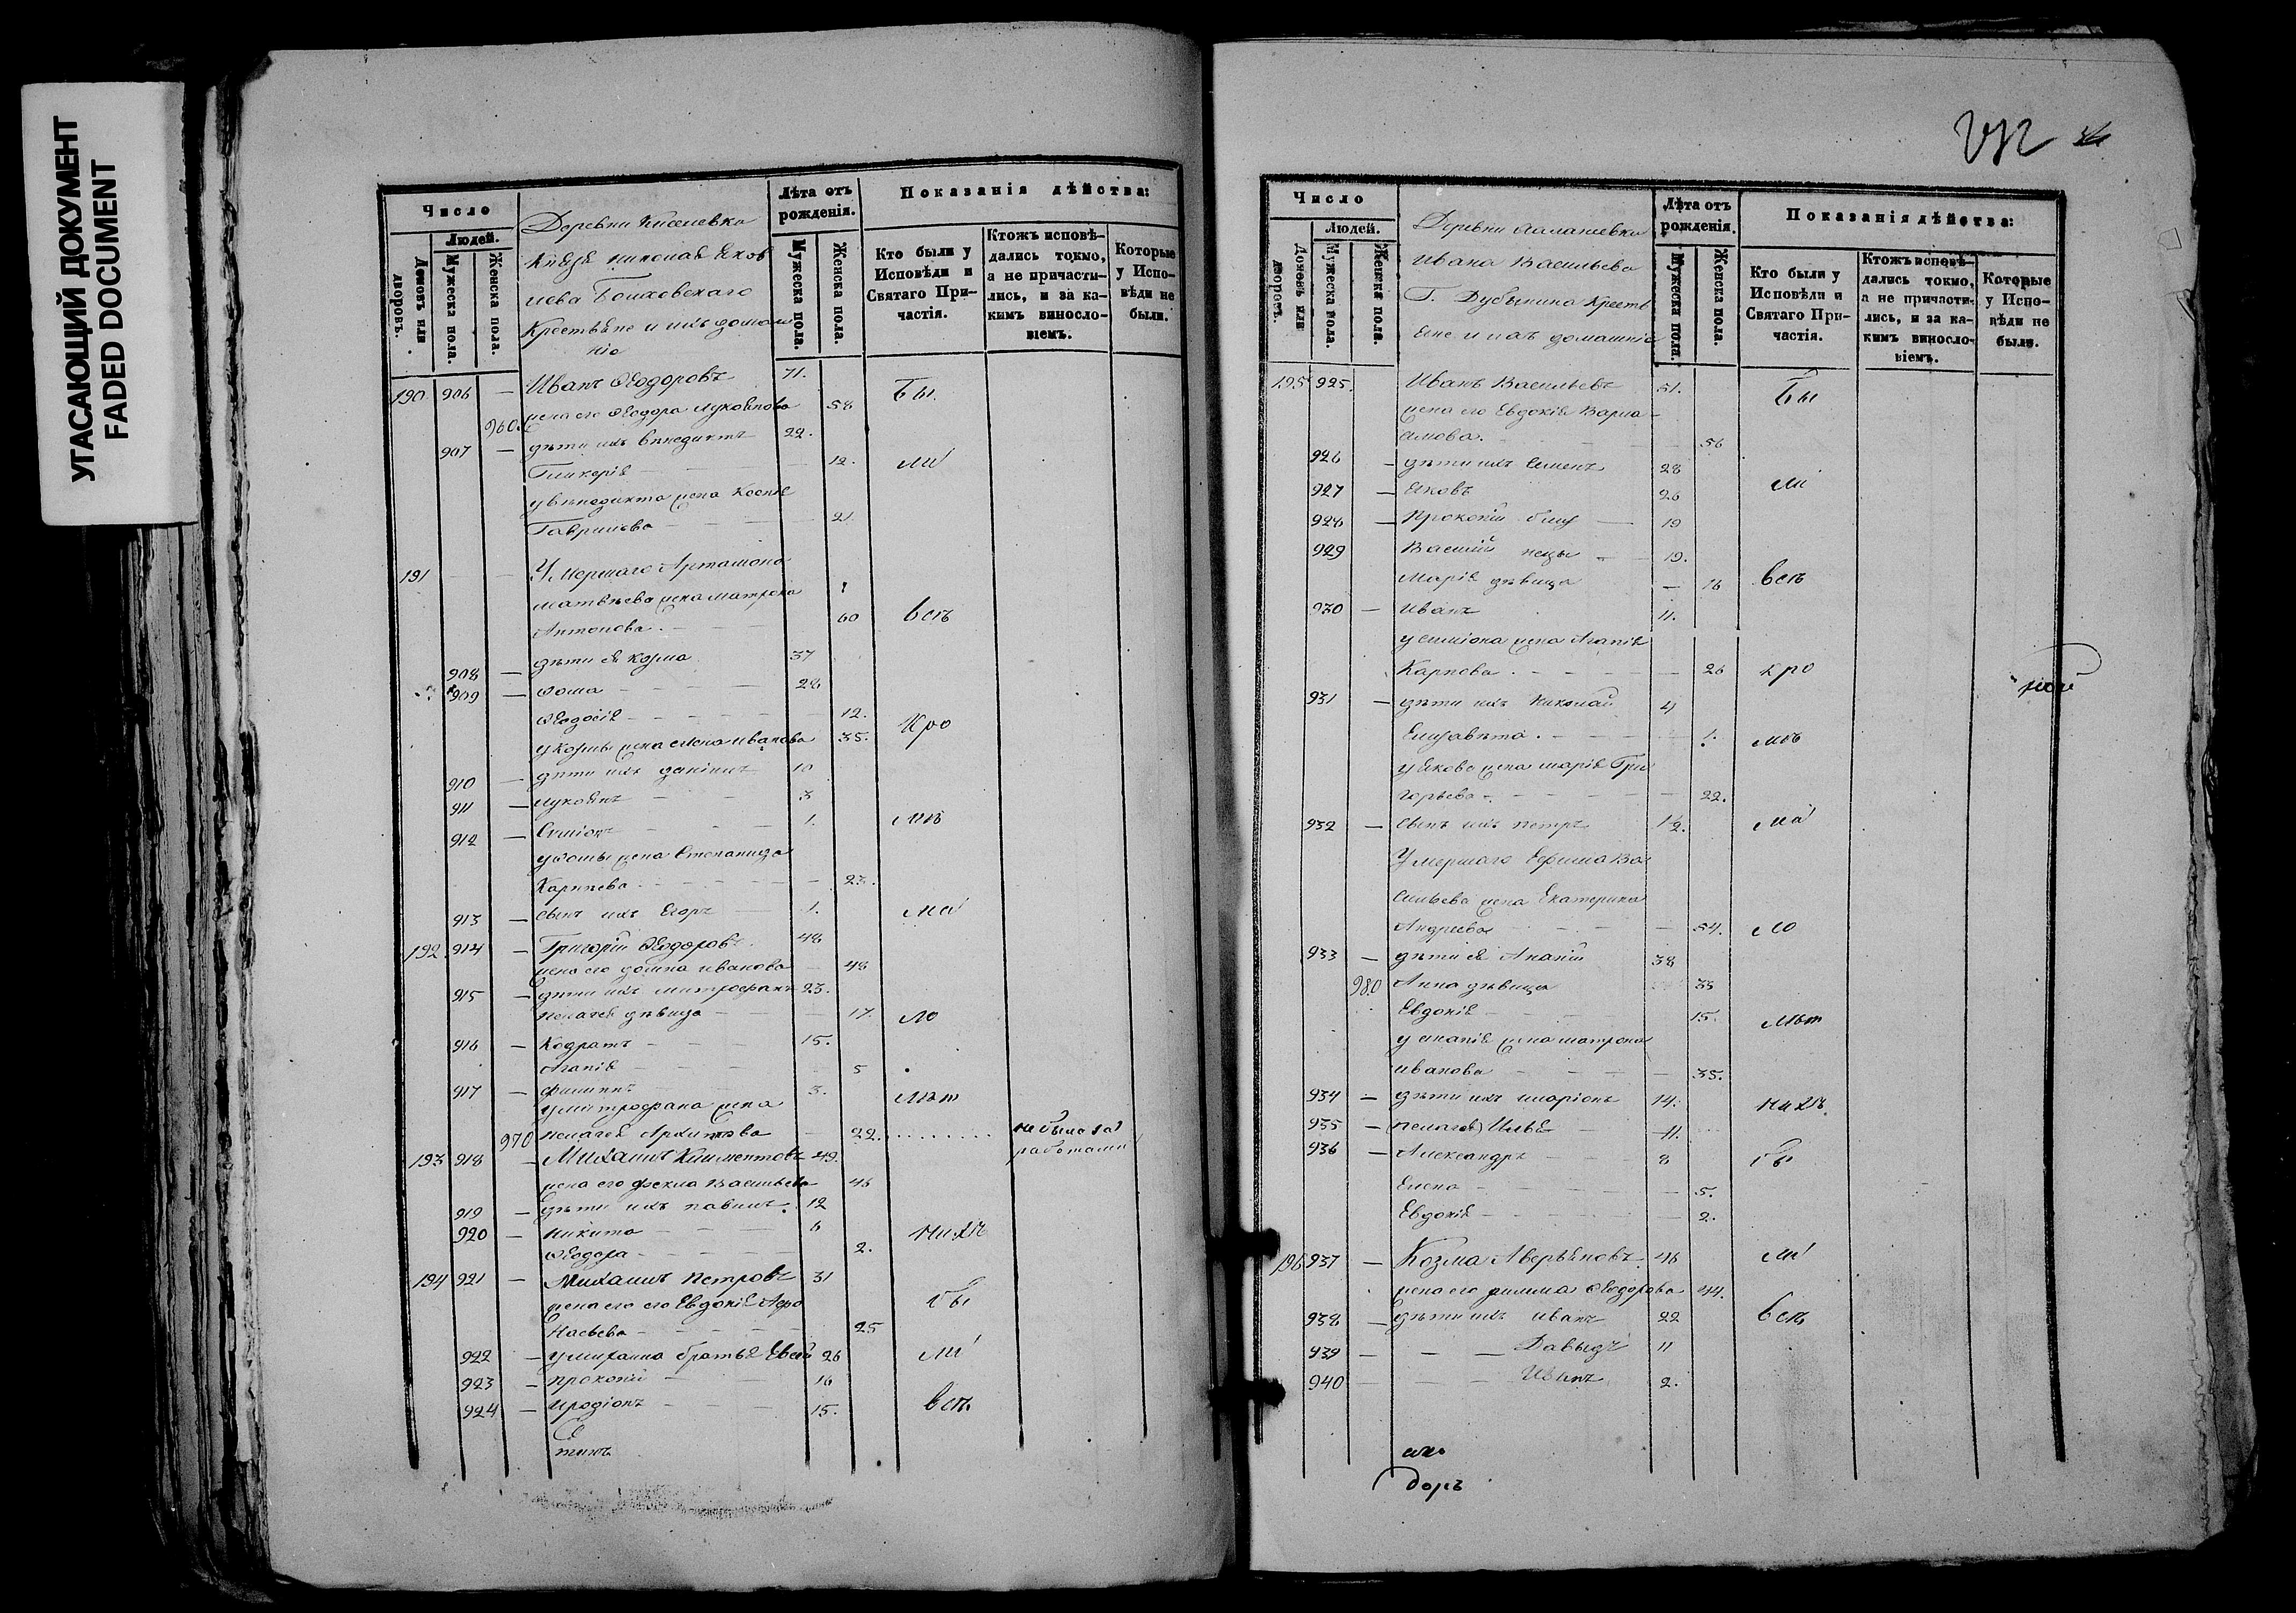 УГАСАЮЩИЙ ДОКУМЕНТ
FADED DOCUMENT
Число
Людей.
Домовъ или дворовъ.
Мужеска пола.
Женска пола.
Деревни
Князя Николая Яков
лева
Крестьяне и ихъ домаш
нiе
Лѣта отъ рожденiя.
Мужеска пола.
Женска пола.
Показанiя дѣйства:
Кто были у Исповѣди и Святаго При-частiя.
Ктожъ исповѣ-дались токмо, а не причасти-лись, и за ка-кимъ винosло-вiемъ.
Которые у Испо-вѣди не были.
190 906 — Иванъ Ѳеодоровъ 71. Бы
960. жена его Ѳеодора Лукоянова 58
907 — дѣти ихъ Венедиктъ 22.
Гликерiя — 12. ли
у Венедикта жена Ксенiя
Гаврилова — 21
191 — — Умершаго Артамона
Матвѣева жена Матрона
Антонова. — 60 всѣ
908 — дѣти ея Козма 37
909 — Ѳома — 28
Ѳеодосiя — 12.
у Козмы жена Елена Иванова 35. Кро
910 — дѣти ихъ Данiилъ 10
911 — Лукоянъ — 3
912 — Симiонъ — 1. мѣ
у Ѳомы жена Степанида
Карпѣева — 23.
913 — сынъ ихъ Егоръ — 1. ма
192 914 — Григорiй Ѳеодоровъ 48
жена его Домна Иванова — 48
915 — дѣти ихъ Митрофанъ 23.
Пелагея дѣвица — 17. ло
916 — Кодратъ — 15.
Агапiя — 5
917 — Филиппъ 3. лѣт
у Митрофана жена
970 Пелагея Архипова — 22. не была за работами
193 918 — Михаилъ Климентовъ 49.
жена его Фекла Васильева 46
919 — дѣти ихъ Павелъ. 12
920 — Никита — 6 нихъ
Ѳеодора — 2.
194 921 — Михаилъ Петровъ 31
жена его его Евдокiя Афо бы
насьева — 25
922 — у Михаила братья Евсей 26 ли
923 — Прокопiй — 16
924 — Иродiонъ — 15. всѣ
Число
Людей.
Домовъ или дворовъ.
Мужеска пола.
Женска пола.
Деревни
Ивана Васильева
Г. Дубынина Кресть
яне и ихъ домашнiе
Лѣта отъ рожденiя.
Мужеска пола.
Женска пола.
Показанiя дѣйства:
Кто были у Исповѣди и Святаго При-частiя.
Ктожъ исповѣ-дались токмо, а не причасти-лись, и за ка-кимъ виносло-вiемъ.
Которые у Испо-вѣди не были.
195 925. Иванъ Васильевъ 51. Бы
жена его Евдокiя Варла—
амова. — 56
926 — дѣти ихъ Семенъ 28
927 — Яковъ 26 ли
928 — Прокопiй — 19
929 Василiй — 19.
Марiя дѣвица — 16 всѣ
930 — Иванъ 11.
у Симiона жена Агапiя
Карпова. — 26 кро
931 — дѣти ихъ Николай 4
Елизавета. — 1. мѣ
у Якова жена Марiя Гри
горьева — 22.
932 — сынъ ихъ Петръ 1/2. ма
Умершаго Ефима Ва
сильева жена Екатерина
Андреева — 54. ло
933 — дѣти ея Ананiй 38
980 Анна дѣвица 33
Евдокiя — 15. лѣт
у Ананiя жена Матрона
Иванова — 35.
934 — дѣти ихъ Иларiонъ 14. нихъ
935 — (Пелагея) Илья — 11.
936 — Александръ — 8 бы
Елена — 5.
Евдокiя — 2.
196 937 — Козма Аверьяновъ 46 ли
жена его Ѳеодорова 44.
938 — дѣти ихъ Иванъ 22 всѣ
939 — — — Давыдъ 11
940 — — — Иванъ 2.